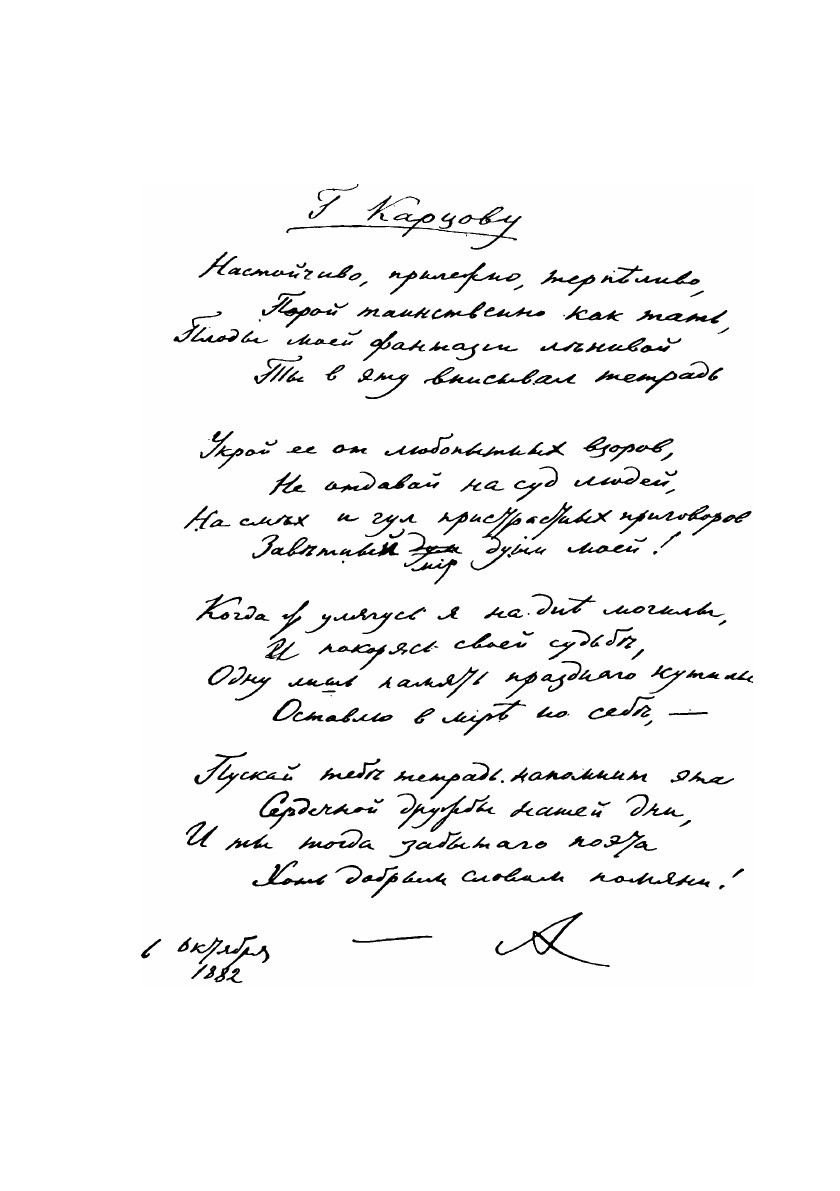 Г Карцову
Настойчиво, прилежно, терпѣливо,
Порой таинственно как тать,
Плоды моей фантазіи лѣнивой
Ты в эту вписывал тетрадь
Укрой ее от любопытных взоров,
Не отдавай на суд людей,
На смѣх и гул пристрастных приговоров
Завѣтный дум души моей!
мір
Когда ж улягусь я на днѣ могилы,
И покорясь своей судьбѣ,
Одну лишь память празднаго кутилы
Оставлю в мірѣ по себѣ, —
Пускай тебѣ тетрадь напомнит эта
Сердечной дружбы нашей дни,
И ты тогда забытаго поэта
Хоть добрым словом помяни!
6 октября — А
1882